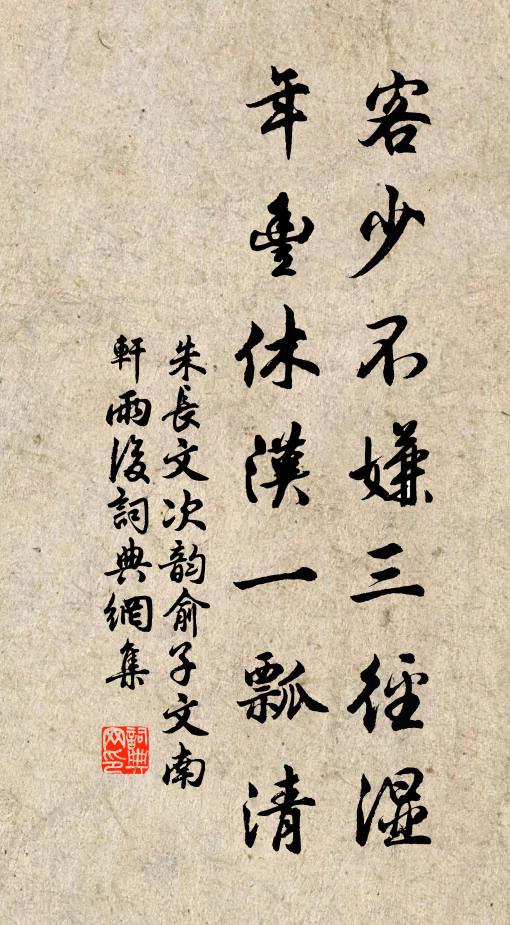 客少不嫌三徑濕
年豐休漢一瓢清
朱長文次韵俞子文南
軒雨後詞典網集
詞典
网印